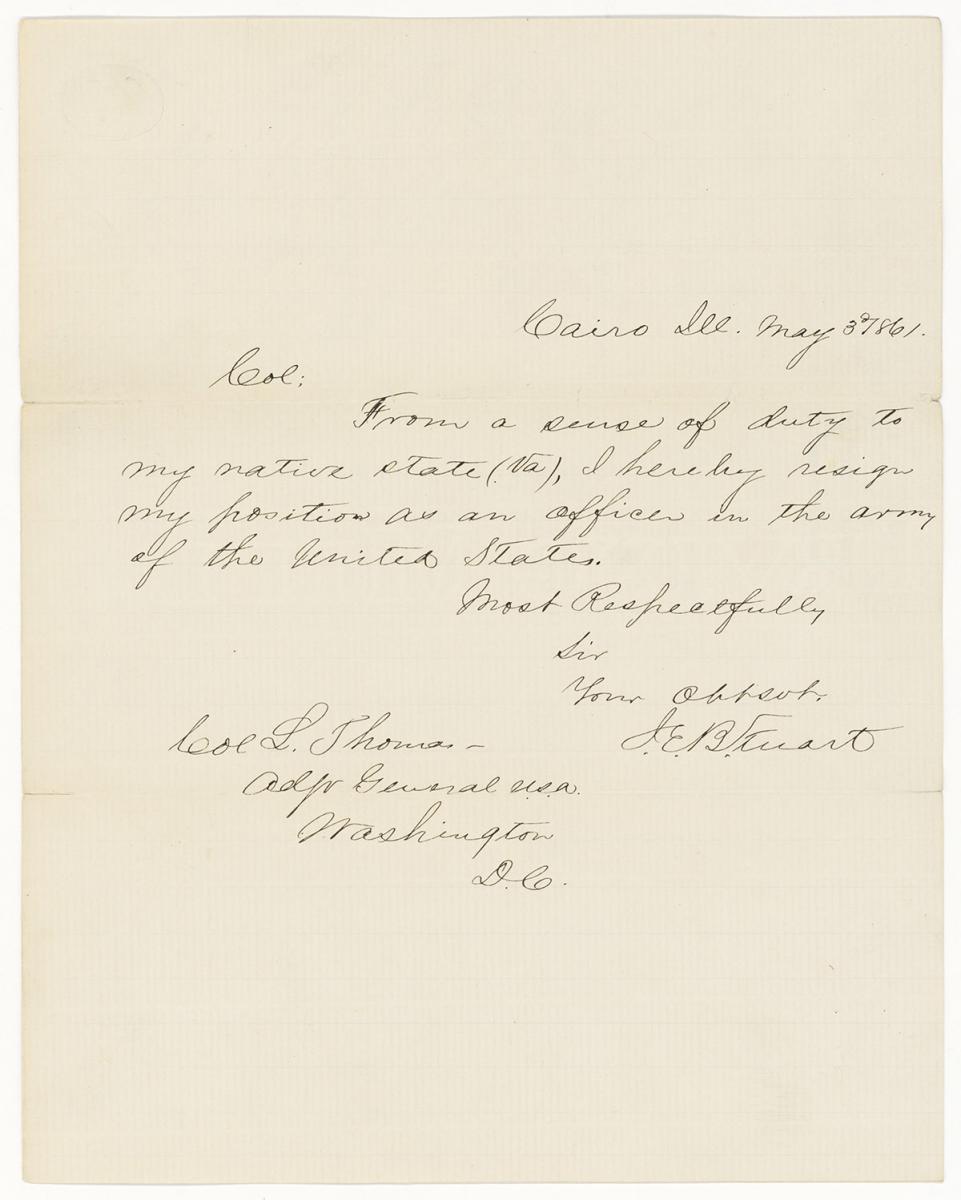 Cairo Ill. May 3d 1861.
Col:
From a sense of duty to
my native state (Va), I hereby resign
my position as an officer in the army
of the United States.
Most Respectfully
Sir
Your Obt svt.
J.E.B. Stuart
Col L. Thomas –
Adjt General U.S.A.
Washington
D.C.